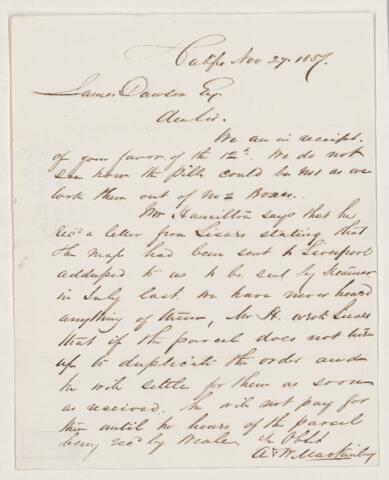 Halifax Nov 27. 1857.
James Dawson Esq.
Dear Sir.
We are in receipt
of your favor of the 12th. We do not
see how the Pills could be not as we
took them out of no 2 Boxes.
Mr Hamilton says that he
rec'd a letter from stating that
the maps had been sent to Liverpool
addressed to us to be sent by Steamer
in July last. We have never heard
anything of them, Mr H. wrote
that if the parcel does not turn
up to duplicate the order and
he will settle for them as soon
as received. he will not pay for
them until he hears of the parcel
being rec'd by Weale.
Yr Obt
A & W. MacKinlay